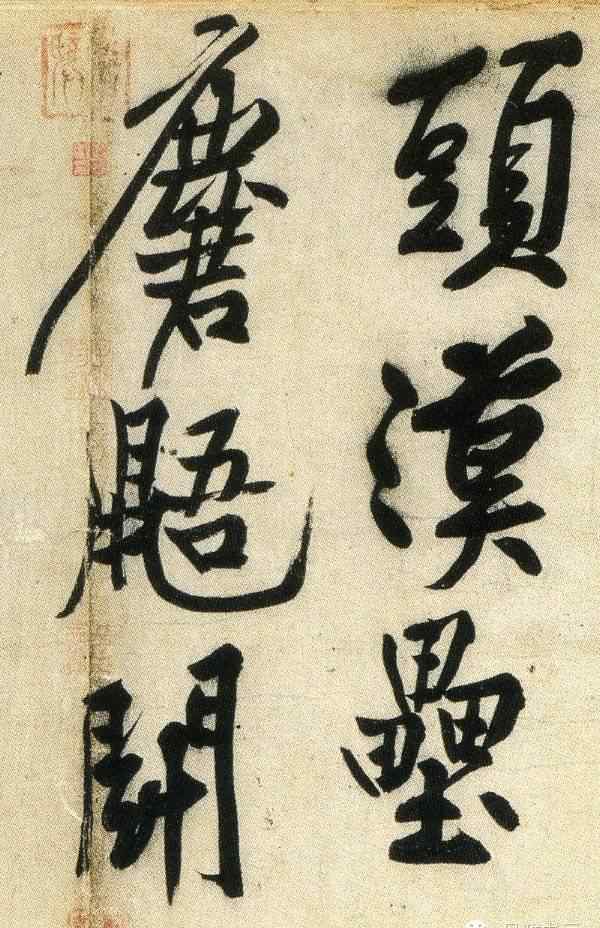 頭漢壘
麏鼯鬥